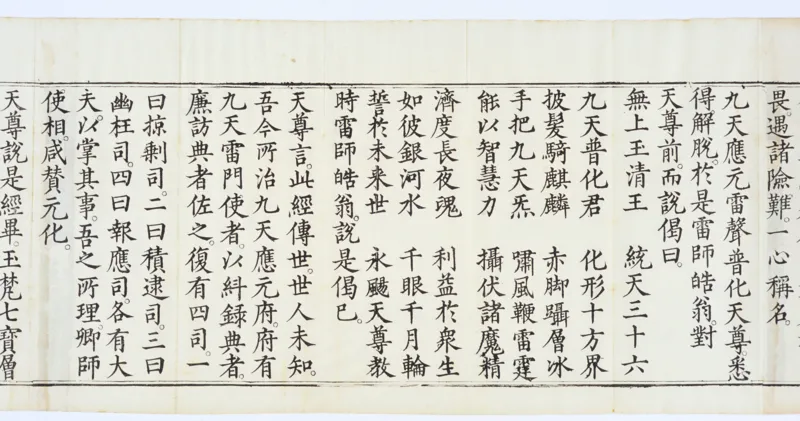 畏。遇諸險難。一心稱名。
九天應元雷聲普化天尊。悉
得解脫。於是雷師皓翁。對
天尊前。而說偈曰。
無上玉清王　統天三十六
九天普化君　化形十方界
披髮騎麒麟　赤脚躡層冰
手把九天炁　嘯風鞭雷霆
能以智慧力　攝伏諸魔精
濟度長夜魂　利益於衆生
如彼銀河水　千眼千月輪
誓於未来世　永颺天尊教
時雷師皓翁。說是偈已。
天尊言。此經傳世。世人未知。
吾今所治九天應元府。府有
九天雷門使者。以糾録典者。
廉訪典者佐之。復有四司。一
曰掠剩司。二曰積逮司。三曰
幽枉司。四曰報應司。各有大
夫。以掌其事。吾之所理。卿師
使相。咸賛元化。
天尊說是經畢。玉梵七寶層